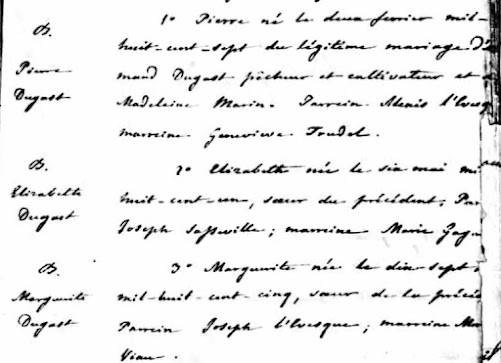 B.
Pierre
Dugast
1º Pierre né le deux fevrier mil-
huit-cent-sept du légitime mariage d'
mand Dugast pêcheur et cultivateur et
Madeleine Marin. Parrein Alexis l'Evesq
marreine Genevieve Trudel.
B.
Elizabeth
Dugast
2º Elizabeth née le six mai mi
huit-cent-un, sœur du précédent; Par
Joseph Lasseville; marreine Marie Gagn
B.
Marguerite
Dugast
3º Marguerite née le dix sept
mil-huit-cent cinq, sœur de la précé
Parrein Joseph l'Evesque; marreine
Viau.